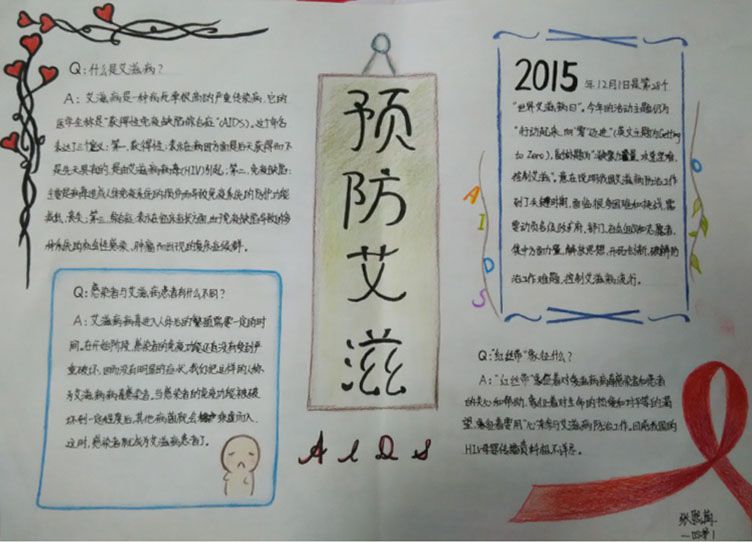 Q：什么是艾滋病？
A：艾滋病是一种病死率极高的严重传染病，它的
医学全称是"获得性免疫缺陷综合症"(AIDS)。这个命名
表达了三个意义：第一，获得性：表示在病因方面是后天获得而不
是先天具有的，是由艾滋病病毒(HIV)引起；第二，免疫缺陷：
主要是病毒造成人体免疫系统的损伤而导致免疫系统的防护功能
减低、丧失；第三，综合症：表示在临床症状方面，由于免疫缺陷导致的多
种系统的机会性感染、肿瘤而出现的复杂症候群。
Q：感染者与艾滋病患者有什么不同？
A：艾滋病病毒进入人体后的繁殖需要一定的时
间。在开始阶段，感染者的免疫功能还没有受到严
重破坏，因而没有明显的症状，我们把这样的人称
为艾滋病病毒感染者。当感染者的免疫功能被破
坏到一定程度后，其他病菌就会乘虚而入，
这时，感染者就成为艾滋病患者了。
预
防
艾
滋
AIDS
2015年12月1日是第28个
"世界艾滋病日"。今年的活动主题仍为
"行动起来，向'零'迈进"(英文主题为Getting
to Zero)，副标题为"
控制艾滋"。意在说明我国艾滋病防治工作
到了关键时期，面临很多困难和挑战，需
要动员各级政府、部门、社会组织和志愿者，
集中各方面力量，解放思想，开拓创新，破解防
治工作难题，控制艾滋病流行。
AIDS
Q："红丝带"象征什么？
A："红丝带"象征着对艾滋病病毒感染者和患者
的关心和帮助，象征着对生命的热爱和对平等的渴
望，象征着要用"心"来参与艾滋病防治工作。目前我国的
HIV母婴传播资料极不详尽。